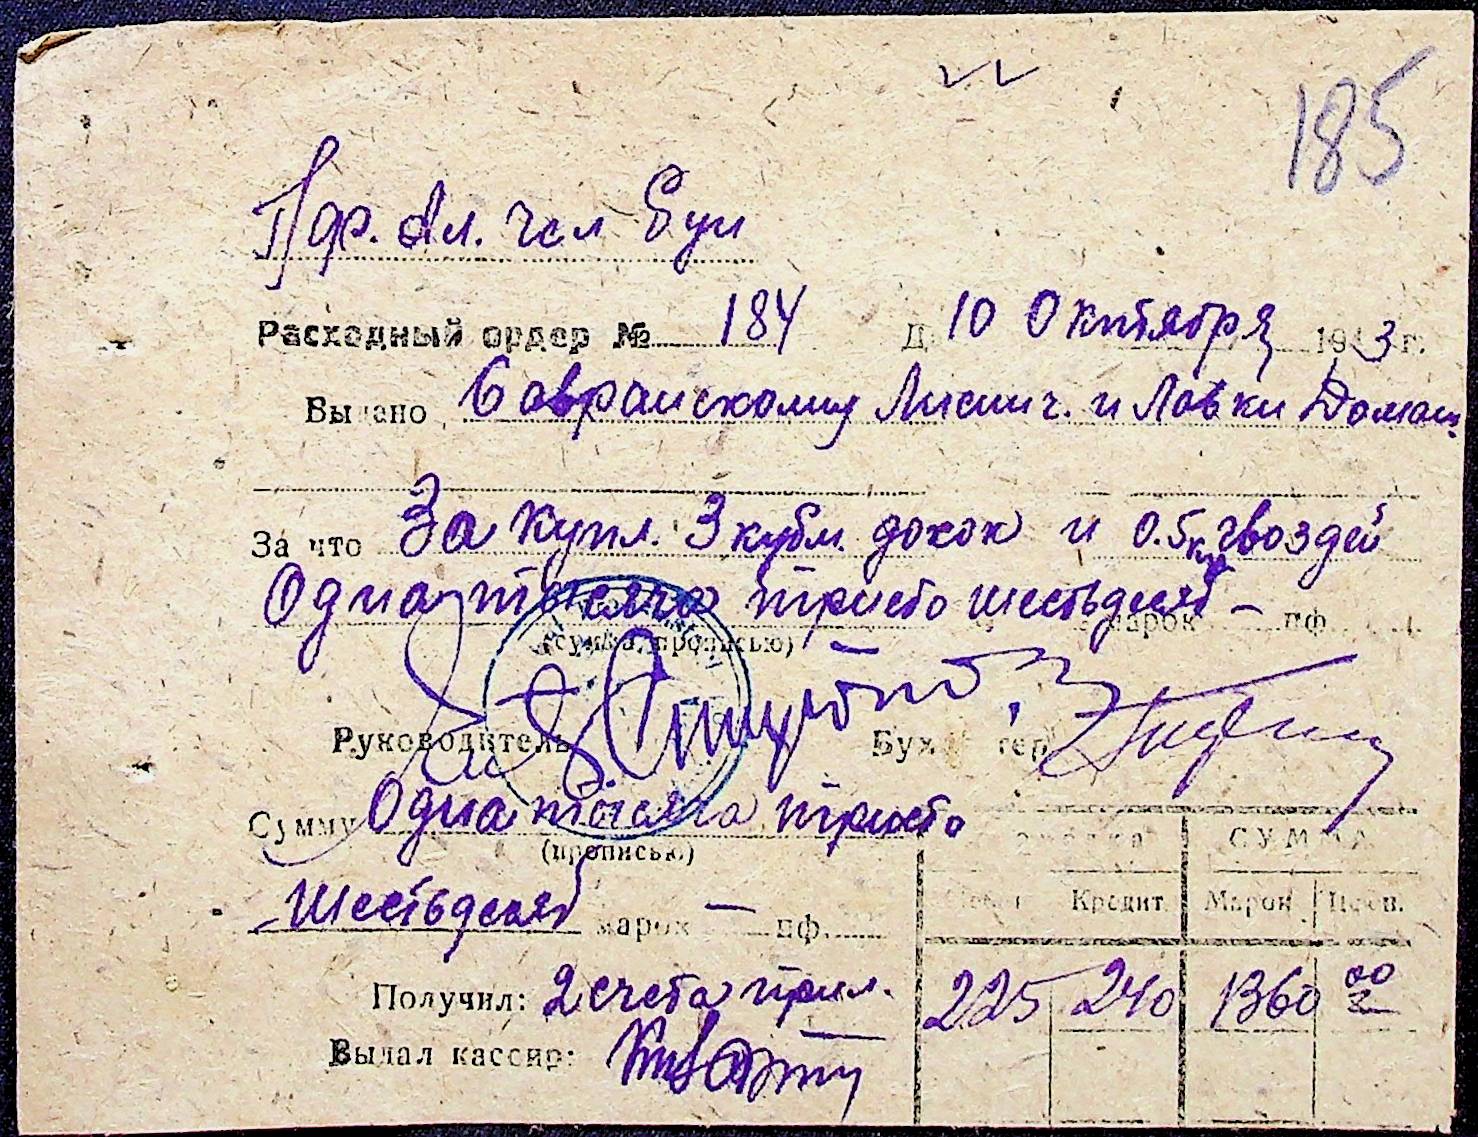 185
Расходный ордер № 184 Д. 10 Октября 1943 г.
Выдано Савранскому Лиснич. и Лавки Домаш.
За что За купл. 3 кубм. досок и 0.5 кг гвоздей
Одна тысяча триста шестьдесят — марок — пф.
(сумма прописью)
Руководитель Бухгалтер
Сумму Одна тысяча триста
(прописью)
Шестьдесят марок — пф.
СУММА
Дебет Кредит Марок Пфен.
Получил: 2 счета прил. 225 240 1360 00
Выдал кассир: